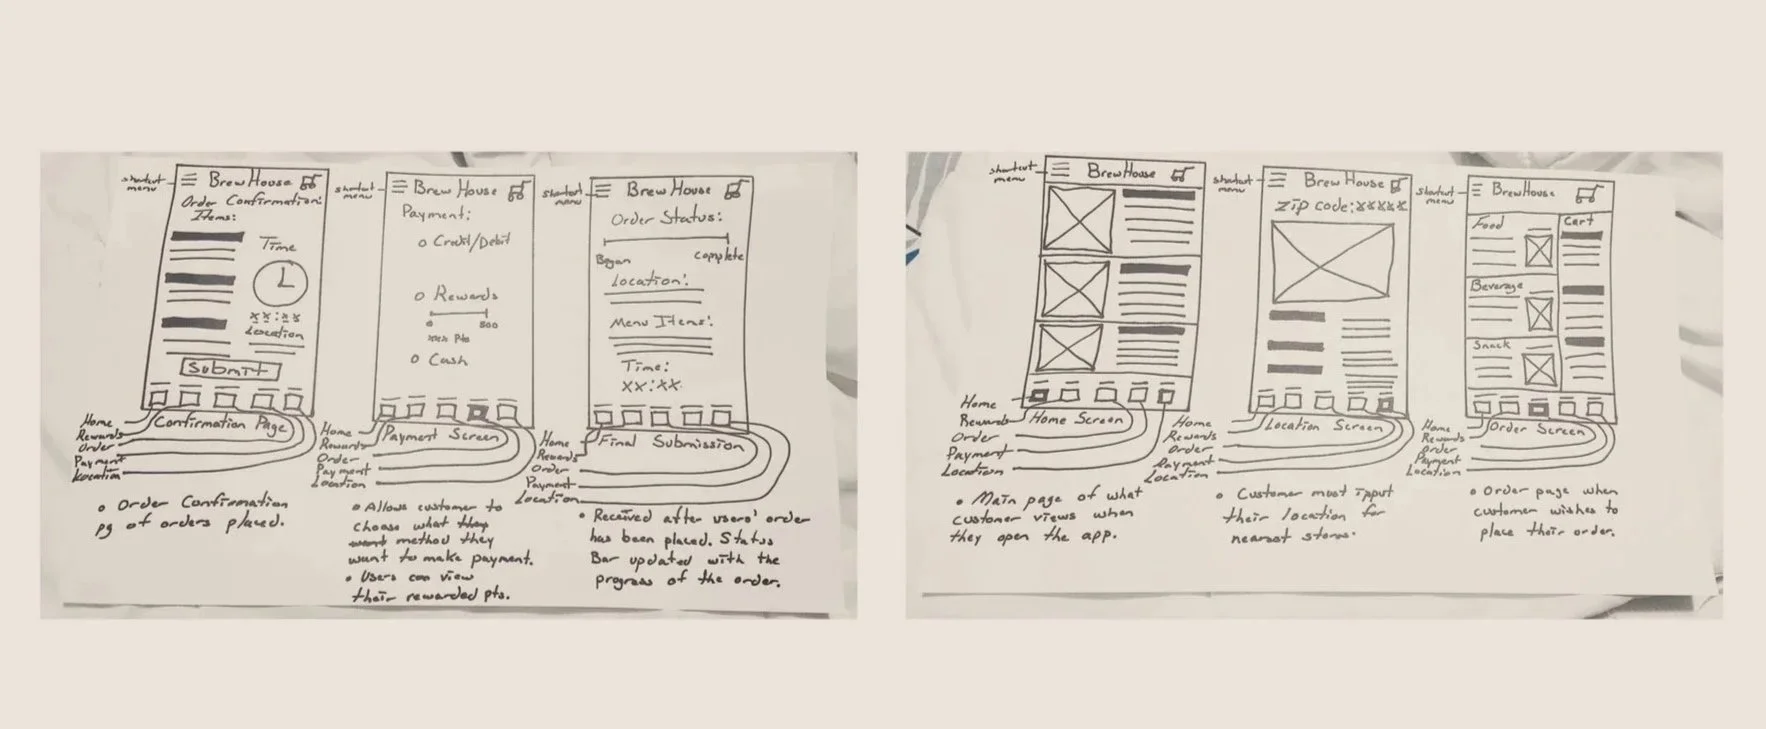 shortcut
menu
BrewHouse
Order Confirmation:
Items:
Time
xx:xx
Location
Submit
Confirmation Page
Home
Rewards
Order
Payment
Location
• Order Confirmation
pg of orders placed.
shortcut
menu
Brew House
Payment:
Credit/Debit
Rewards
0 500
xxx Pts
Cash
Payment Screen
Home
Rewards
Order
Payment
Location
• Allows customer to
choose what they
want method they
want to make payment.
• Users can view
their rewarded pts.
shortcut
menu
Brew House
Order Status:
Began complete
Location:
Menu Items:
Time:
xx:xx
Final Submission
Home
Rewards
Order
Payment
Location
• Received after users' order
has been placed. Status
Bar updated with the
progress of the order.
shortcut
menu
BrewHouse
Home Screen
Home
Rewards
Order
Payment
Location
• Main page of what
customer views when
they open the app.
shortcut
menu
Brew House
Zip code:xxxxx
Location Screen
Home
Rewards
Order
Payment
Location
• Customer must input
their location for
nearest stores.
shortcut
menu
BrewHouse
Food
Cart
Beverage
Snack
Order Screen
Home
Rewards
Order
Payment
Location
• Order page when
customer wishes to
place their order.